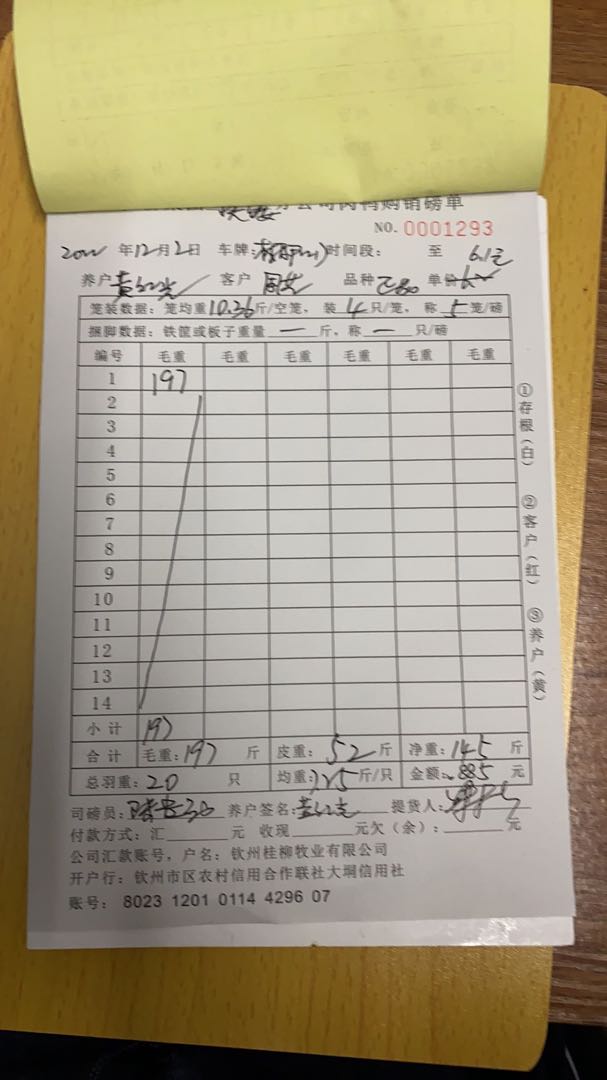 公司肉鸭购销磅单
NO. 0001293
年12月2日 车牌: 时间段: 至 6.1元
养户 黄红光 客户 周 品种 单价 6
笼装数据: 笼均重10.36斤/空笼, 装 4 只/笼, 称 5 笼/磅
捆脚数据: 铁筐或板子重量 — 斤, 称 — 只/磅
编号 毛重 毛重 毛重 毛重 毛重 毛重
1 197
2
3
4
5
6
7
8
9
10
11
12
13
14
小计 197
合计 毛重: 197 斤 皮重: 52 斤 净重: 145 斤
总羽重: 20 只 均重: 7.25斤/只 金额: 885 元
司磅员: 养户签名: 黄红光 提货人:
付款方式: 汇 元 收现 元欠(余): 元
公司汇款账号, 户名: 钦州桂柳牧业有限公司
开户行: 钦州市区农村信用合作联社大垌信用社
账号: 8023 1201 0114 4296 07
①存根(白) ②客户(红) ③养户(黄)